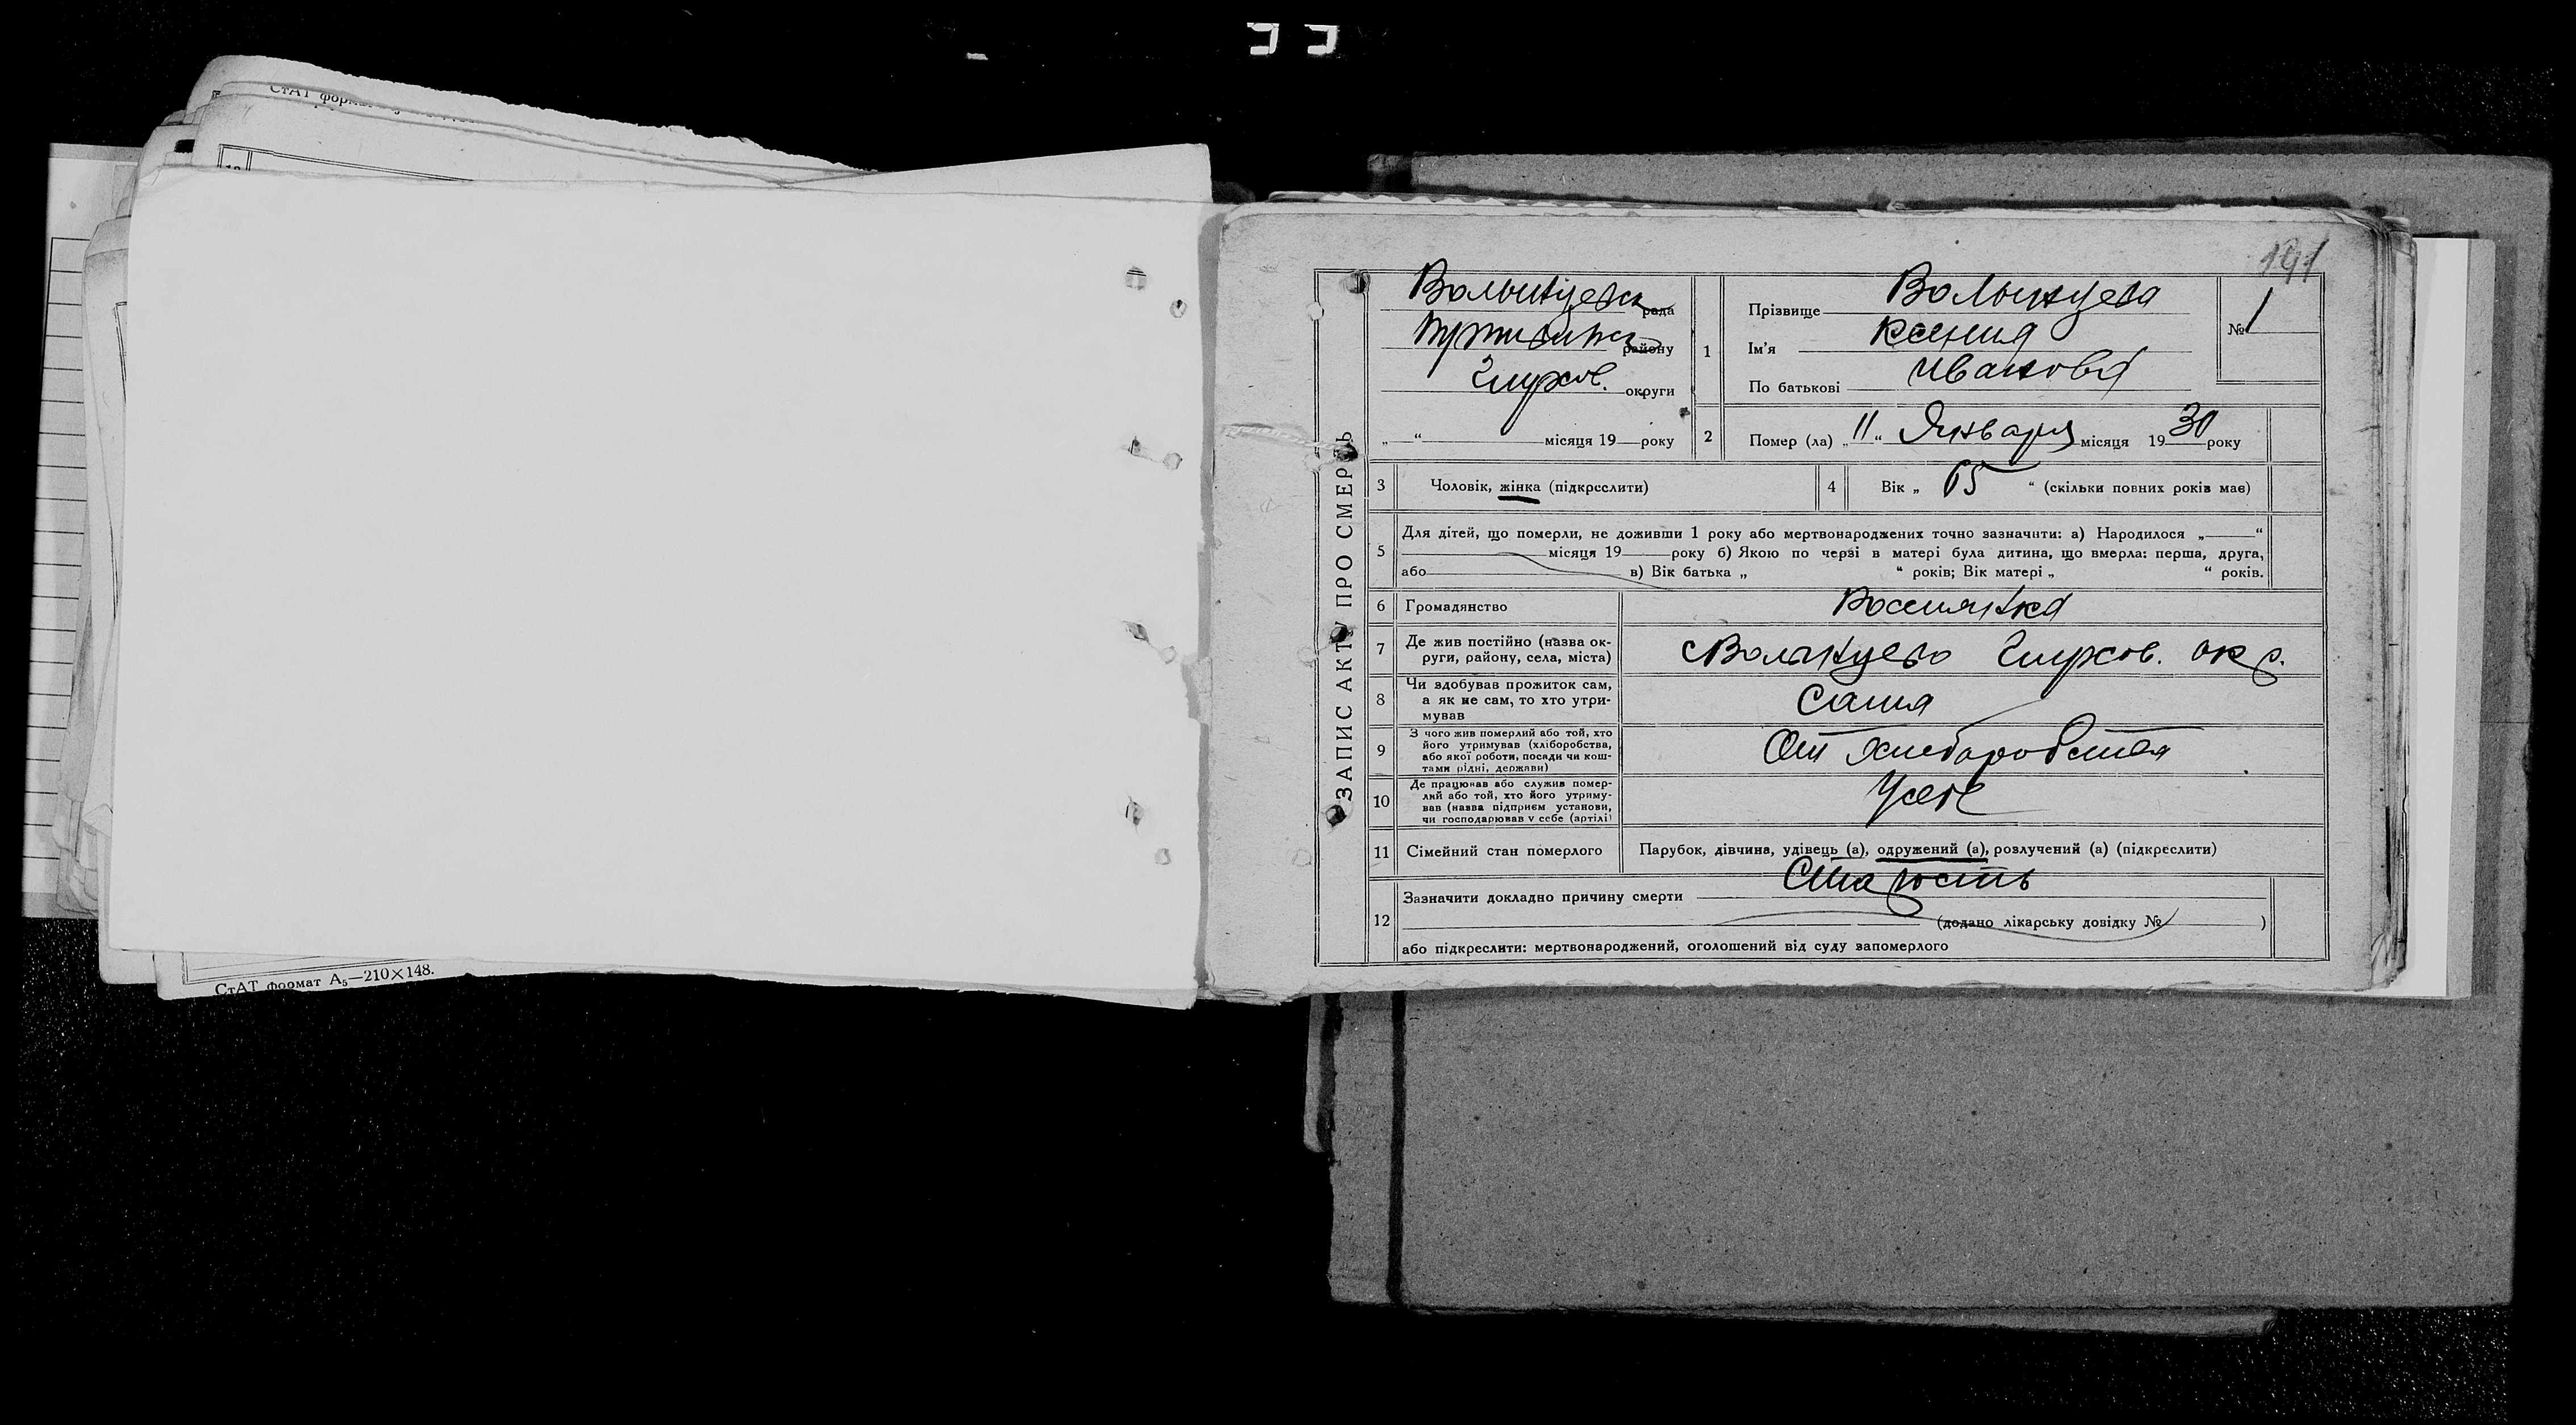 СтАТ форм
191
ЗАПИС АКТУ ПРО СМЕРТЬ
Волынцевск рада
Путивльск району
Глухов. округи
„ “ місяця 19 року
1
Прізвище Волынцева
Ім'я Ксения
По батькові Иванова
№ 1
2
Помер (ла) „ 11 “ Января місяця 1930 року
3
Чоловік, жінка (підкреслити)
4
Вік „ 65 “ (скільки повних років має)
5
Для дітей, що померли, не доживши 1 року або мертвонароджених точно зазначити: а) Народилося „ “
місяця 19 року б) Якою по черзі в матері була дитина, що вмерла: перша, друга,
або в) Вік батька „ “ років; Вік матері „ “ років.
6
Громадянство
Россиянка
7
Де жив постійно (назва ок-
руги, району, села, міста)
с Волынцево Глухов. окр.
8
Чи здобував прожиток сам,
а як не сам, то хто утри-
мував
Сама
9
З чого жив померлий або той, хто
його утримував (хліборобства,
або якої роботи, посади чи кош-
тами рідні, держави)
От хлебаробства
10
Де працював або служив помер-
лий або той, хто його утриму-
вав (назва підприєм установи,
чи господарював у себе (артілі)
У себе
11
Сімейний стан померлого
Парубок, дівчина, удівець (а), одружений (а), розлучений (а) (підкреслити)
12
Зазначити докладно причину смерти Старость
(додано лікарську довідку № )
або підкреслити: мертвонароджений, оголошений від суду запомерлого
СтАТ формат А₅—210×148.